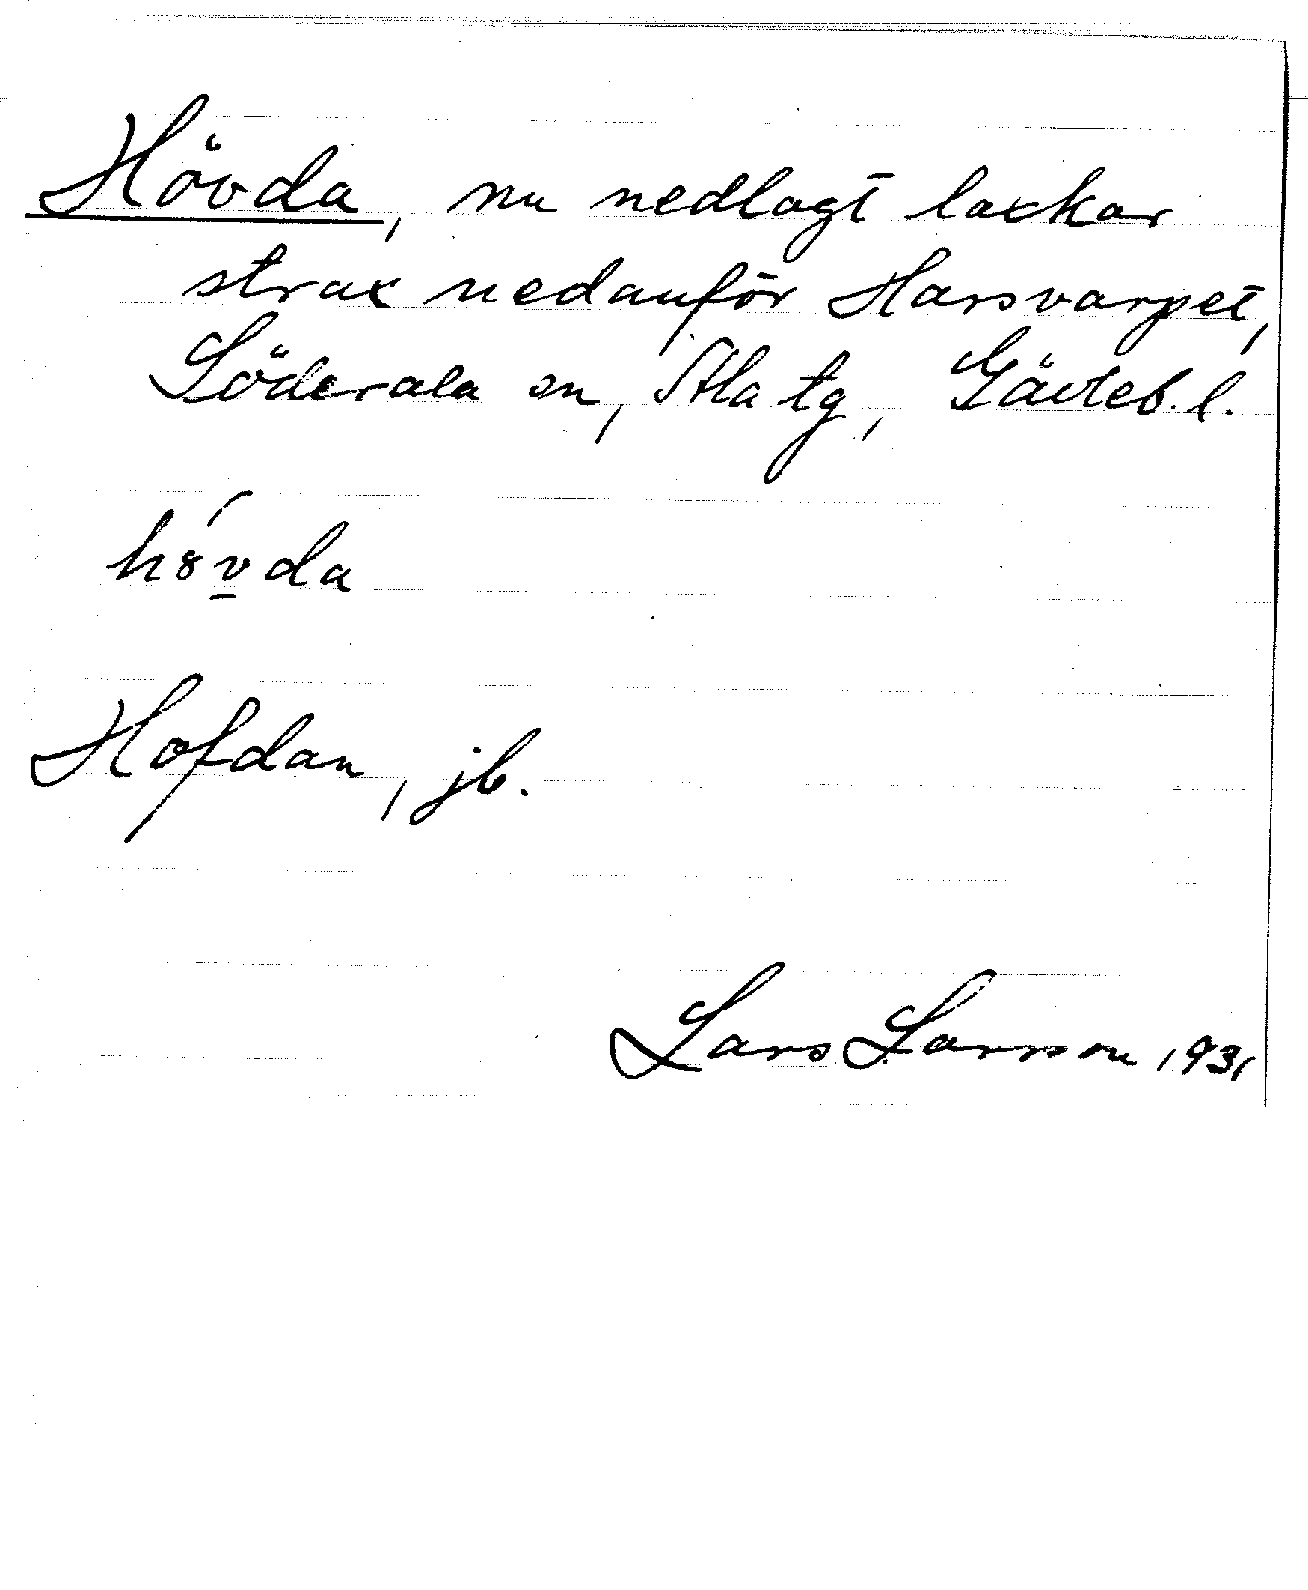 Hövda, nu nedlagt laxkar
strax nedanför Harsvarpet,
Söderala sn, Ala tg, Gävleb. l.
h8́v̲da
Hofdan, jb.
Lars Larsson 1931